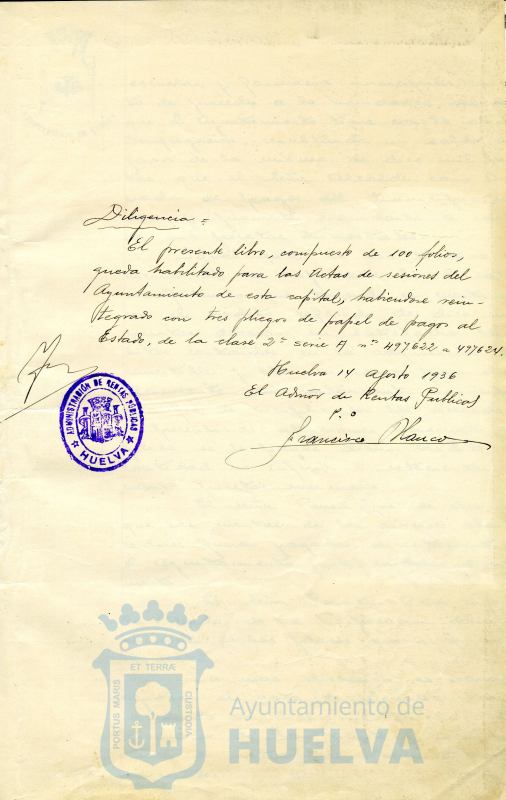 Diligencia =
El presente libro, compuesto de 100 folios,
queda habilitado para las Actas de sesiones del
Ayuntamiento de esta capital, habiendose rein-
tegrado con tres pliegos de papel de pagos al
Estado, de la clase 2ª serie A nº 497622 a 497624.
Huelva 14 Agosto 1936
El Admor de Rentas Publicas
P.O
Francisco Blanco
ADMINISTRACIÓN DE RENTAS PÚBLICAS
HUELVA
PORTUS MARIS ET TERRÆ CUSTODIA
Ayuntamiento de
HUELVA